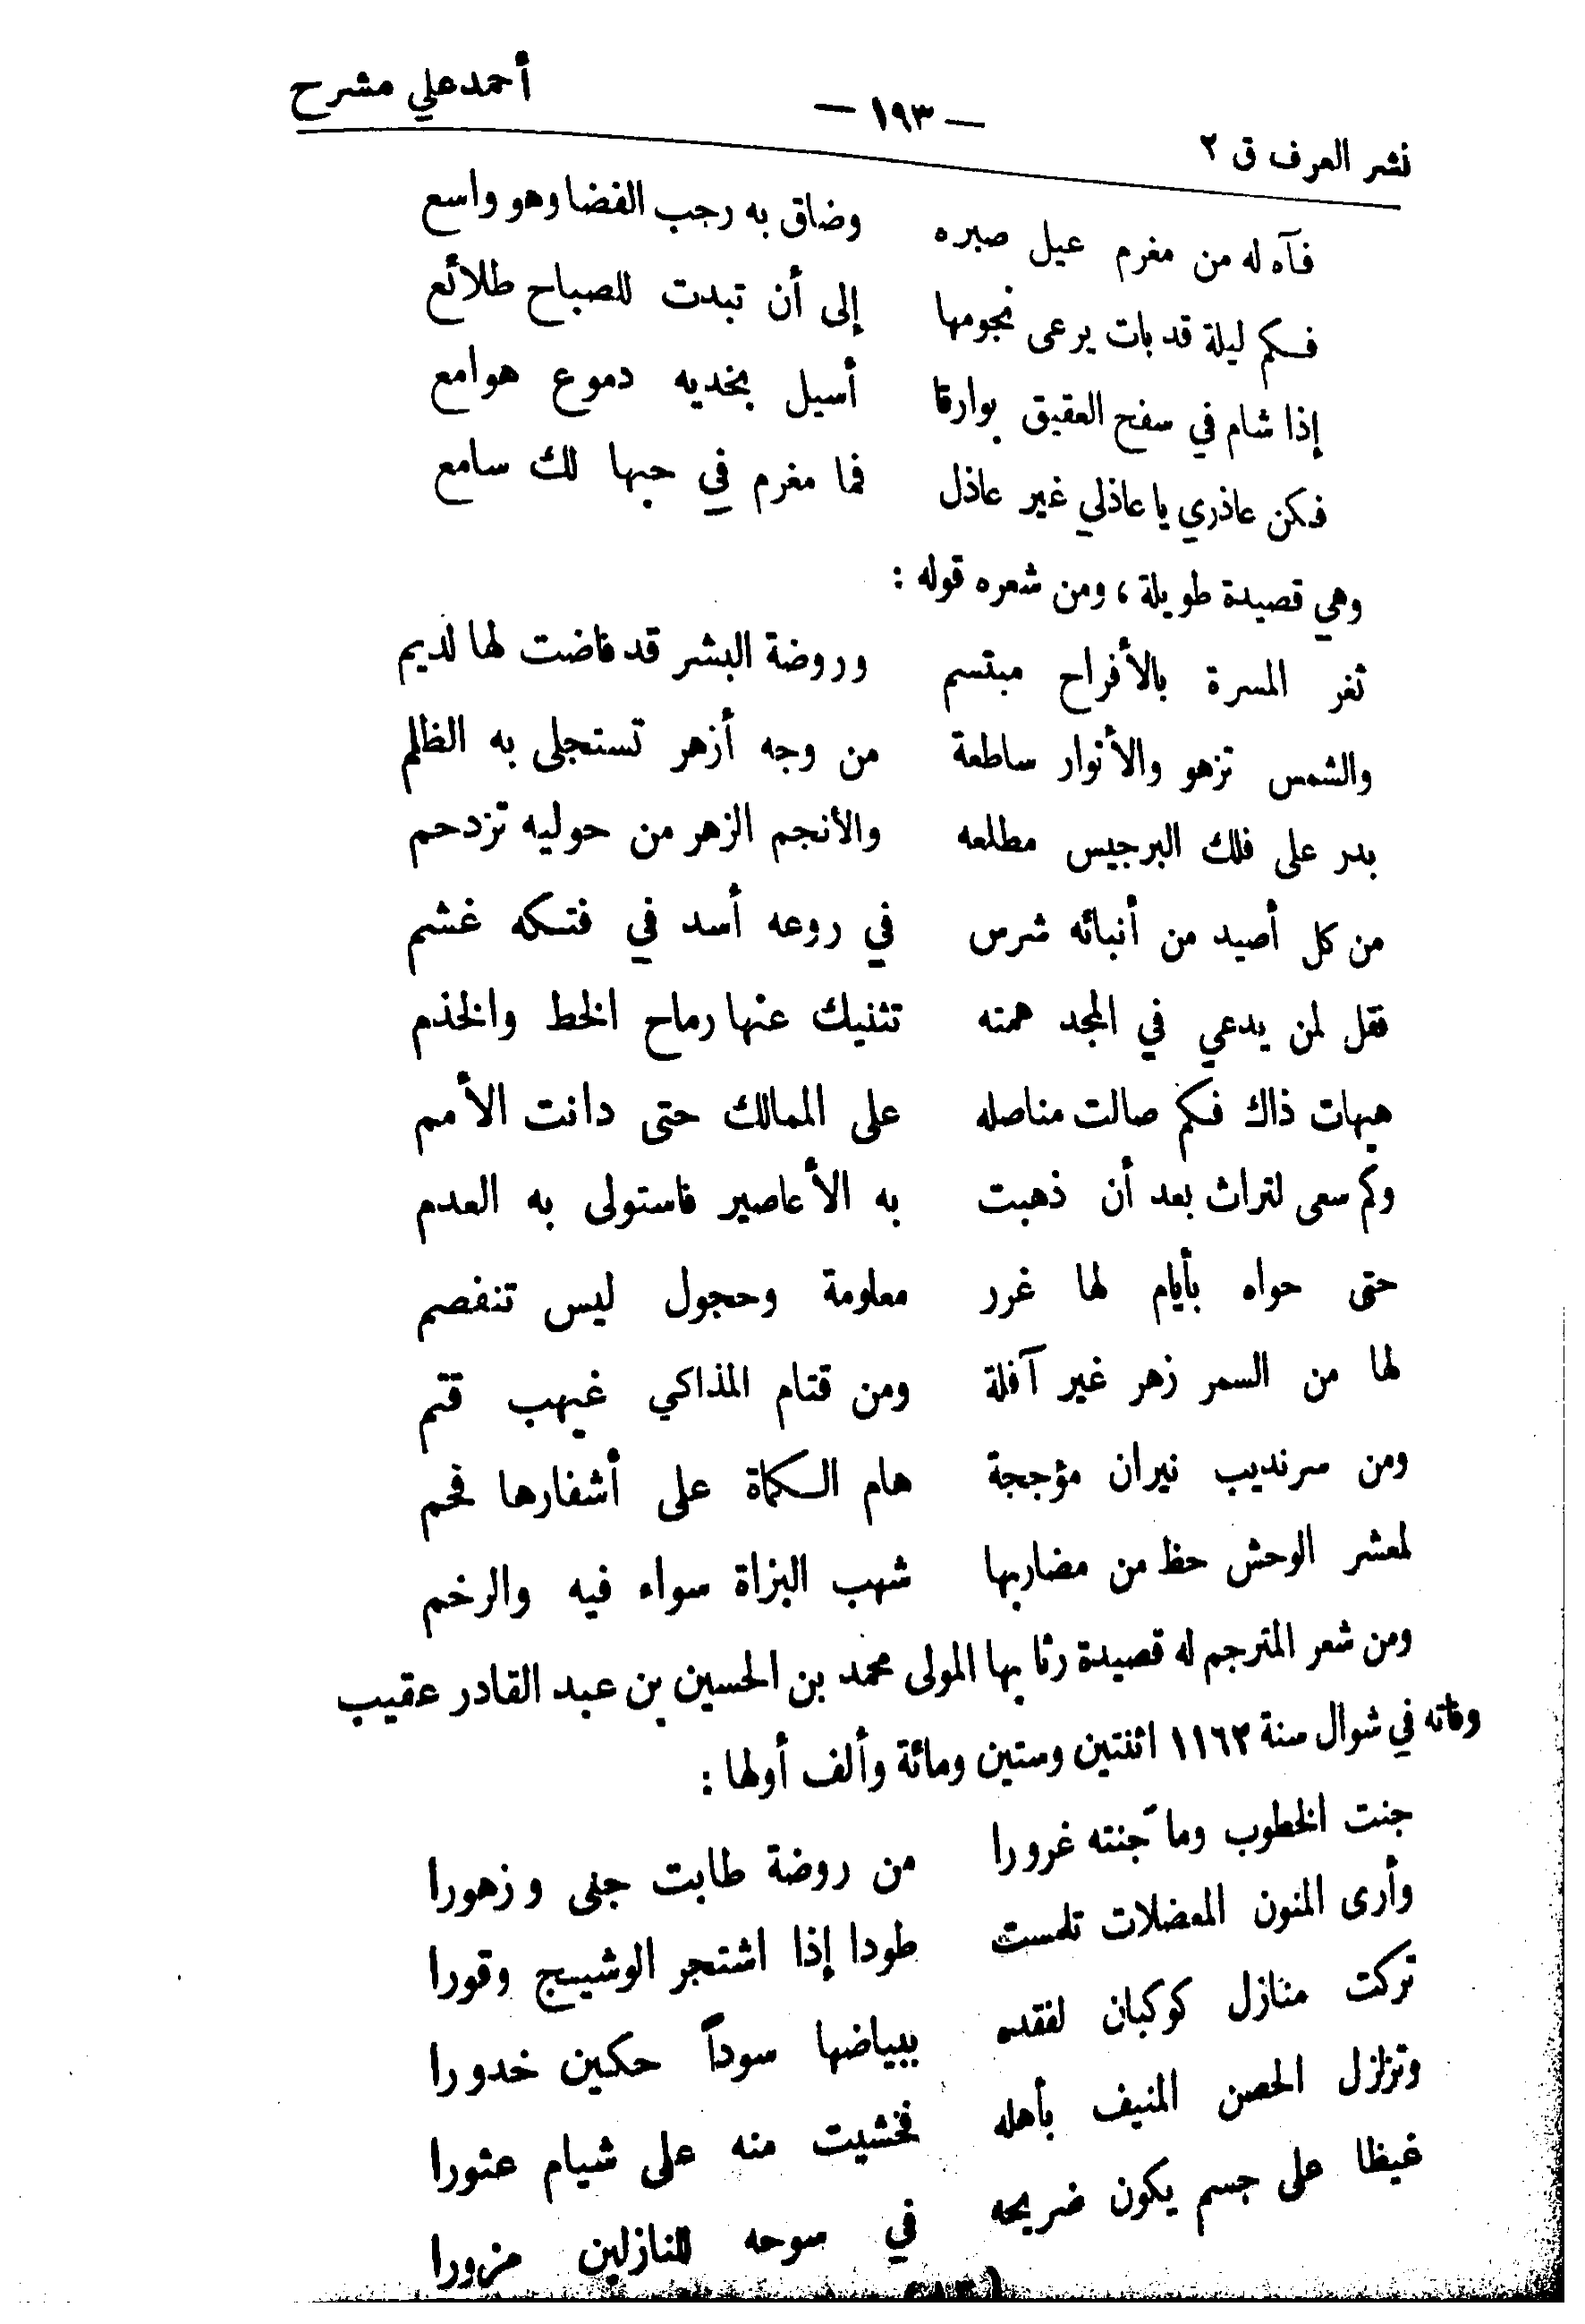 نشر العرف ق ٢ — ١٩٣ — أحمد علي مشرح
فآه له من مغرم عيل صبره وضاق به رجب الفضا وهو واسع
فكم ليلة قد بات يرعى نجومها إلى أن تبدت للصباح طلائع
إذا شام في سفح العقيق بوارقا أسيل بخديه دموع هوامع
فكن عاذري يا عاذلي غير عاذل فما مغرم في حبها لك سامع
وهي قصيدة طويلة ، ومن شعره قوله :
ثغر المسرة بالأفراح مبتسم وروضة البشر قد فاضت لها لديم
والشمس تزهو والأنوار ساطعة من وجه أزهر تستجلى به الظلم
بدر على فلك البرجيس مطلعه والأنجم الزهر من حوليه تزدحم
من كل أصيد من أنبائه شرس في روعه أسد في فتكه غشم
فقل لمن يدعي في المجد همته تثنيك عنها رماح الخط والخذم
هيهات ذاك فكم صالت مناصله على الممالك حتى دانت الأمم
وكم سعى لتراث بعد أن ذهبت به الأعاصير فاستولى به العدم
حتى حواه بأيام لها غرر معلومة وحجول ليس تنفصم
لها من السمر زهر غير آفلة ومن قتام المذاكي غيهب قتم
ومن سرنديب نيران مؤججة هام الكماة على أشفارها فحم
لمعشر الوحش حظ من مضاربها شهب البزاة سواء فيه والرخم
ومن شعر المترجم له قصيدة رثا بها المولى محمد بن الحسين بن عبد القادر عقيب
وفاته في شوال سنة ١١٦٢ اثنتين وستين ومائة وألف أولها :
جنت الخطوب وما جنته غرورا من روضة طابت جنى وزهورا
وأرى المنون المعضلات تلمست طودا إذا اشتجر الوشيج وقورا
تركت منازل كوكبان لفقده ببياضها سوداً حكين خدورا
وتزلزل الحصن المنيف بأهله فخشيت منه على شبام عثورا
غيظا على جسم يكون ضريحه في سوحه للنازلين مزورا